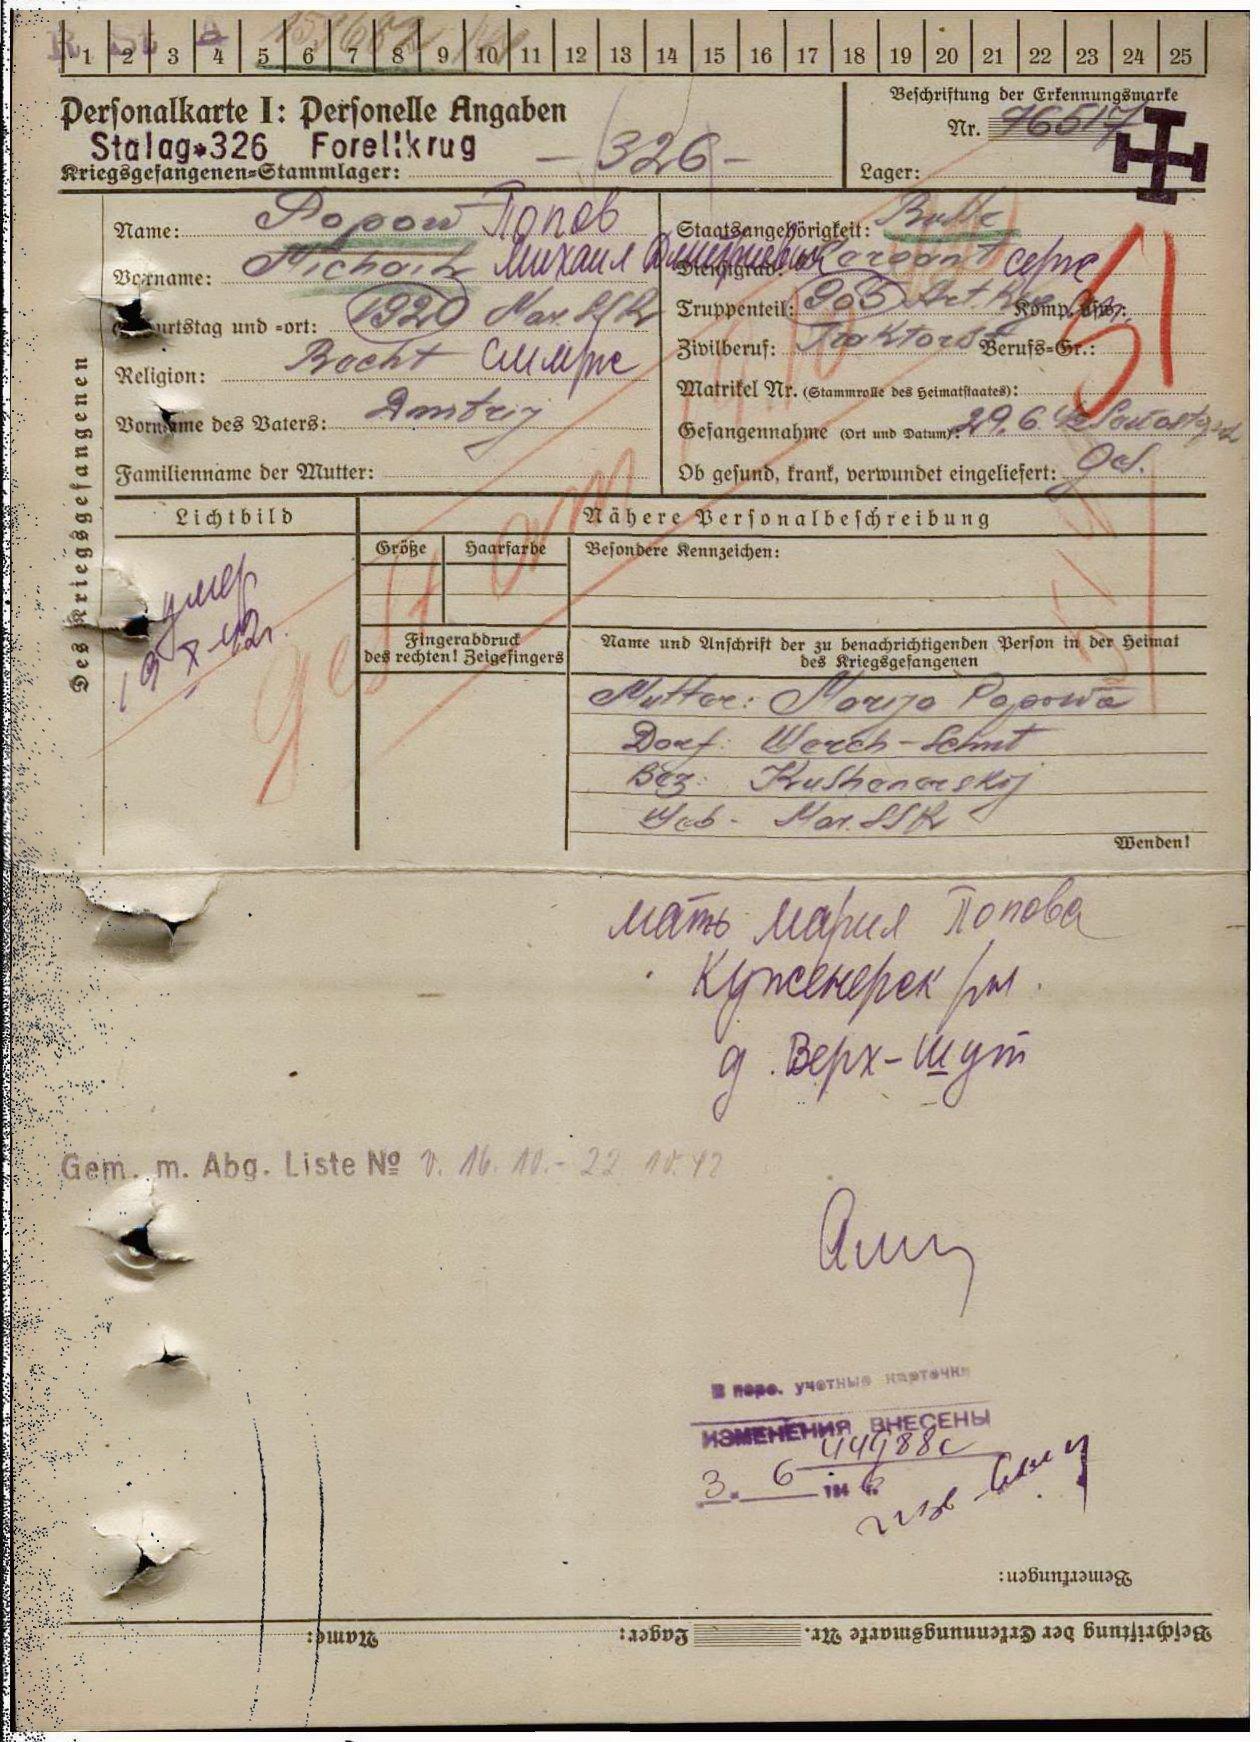 1 2 3 4 5 6 7 8 9 10 11 12 13 14 15 16 17 18 19 20 21 22 23 24 25
Personalkarte I: Personelle Angaben
Beschriftung der Erkennungsmarke
Stalag 326 Forellkrug
Nr. 76517
Kriegsgefangenen-Stammlager: - 326 -
Lager:
Des Kriegsgefangenen
Name: Popow Попов
Staatsangehörigkeit: Russe
Vorname: Michail Михаил Дмитриевич
Dienstgrad: Sergant серж
Geburtstag und -ort: 1920 Mar. SSR
Truppenteil: 965 Art. Rg. Komp. usw.:
Zivilberuf: Traktorist Berufs-Gr.:
Religion:
Matrikel Nr. (Stammrolle des Heimatstaates):
Vorname des Vaters: Dmitrij
Gefangennahme (Ort und Datum): 29.6.42
Familienname der Mutter:
Ob gesund, krank, verwundet eingeliefert: Ges.
Lichtbild
Nähere Personalbeschreibung
Größe
Haarfarbe
Besondere Kennzeichen:
умер
X-42г.
Fingerabdruck
des rechten! Zeigefingers
Name und Anschrift der zu benachrichtigenden Person in der Heimat
des Kriegsgefangenen
Mutter: Marija Popowa
Dorf: Werch-Schut
Bez: Kushenerskij
Geb- Mar. SSR
Wenden!
мать Мария Попова
Куженерск р-н.
д. Верх-Шут
Gem. m. Abg. Liste № v. 16.10.-22.10.42
В перс. учетные карточки
ИЗМЕНЕНИЯ ВНЕСЕНЫ
44988с
3. 6 194 6 г.
Bemerkungen:
Beschriftung der Erkennungsmarke Nr. Lager: Name: